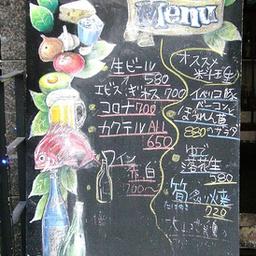 Menu
生ビール
580
エビス、ギネス 700
コロナ 700
カクテル ALL
650
ワイン
赤、白
700〜
オススメ
料理
イベリコ豚
ベーコンと
ほうれん草
880 サラダ
ゆで
落花生
580
筍 焼
720